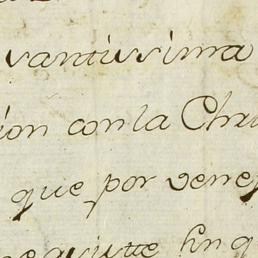 santissima
ion con la Chri
que por vene